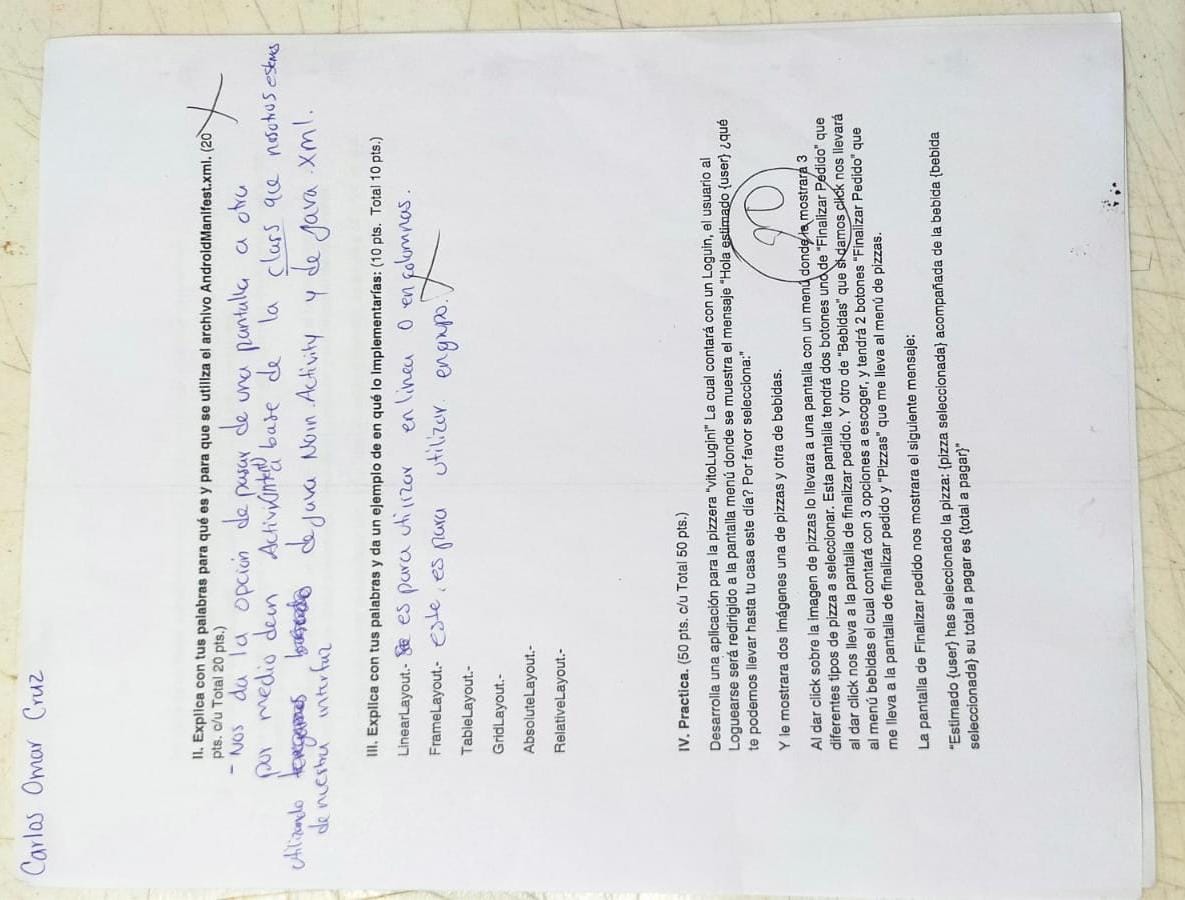 Carlos Omar Cruz
II. Explica con tus palabras para qué es y para que se utiliza el archivo AndroidManifest.xml. (20
pts. c/u Total 20 pts.)
- Nos da la opción de pasar de una pantalla a otra
por medio de un Activi(intent) a base de la class que nosotros estemos
utilizando de java Noin.Activity y de java .xml.
de nuestra interfaz
III. Explica con tus palabras y da un ejemplo de en qué lo implementarías: (10 pts. Total 10 pts.)
LinearLayout.- es para utilizar en linea o en columnas.
FrameLayout.- este, es para utilizar en grupo.
TableLayout.-
GridLayout.-
AbsoluteLayout.-
RelativeLayout.-
IV. Practica. (50 pts. c/u Total 50 pts.)
Desarrolla una aplicación para la pizzera "vitoLugini" La cual contará con un Loguin, el usuario al
Loguearse será redirigido a la pantalla menú donde se muestra el mensaje "Hola estimado {user} ¿qué
te podemos llevar hasta tu casa este día? Por favor selecciona:"
Y le mostrara dos imágenes una de pizzas y otra de bebidas.
Al dar click sobre la imagen de pizzas lo llevara a una pantalla con un menú donde le mostrara 3
diferentes tipos de pizza a seleccionar. Esta pantalla tendrá dos botones uno de "Finalizar Pedido" que
al dar click nos lleva a la pantalla de finalizar pedido. Y otro de "Bebidas" que si damos click nos llevará
al menú bebidas el cual contará con 3 opciones a escoger, y tendrá 2 botones "Finalizar Pedido" que
me lleva a la pantalla de finalizar pedido y "Pizzas" que me lleva al menú de pizzas.
La pantalla de Finalizar pedido nos mostrara el siguiente mensaje:
"Estimado {user} has seleccionado la pizza: {pizza seleccionada} acompañada de la bebida {bebida
seleccionada} su total a pagar es {total a pagar}"